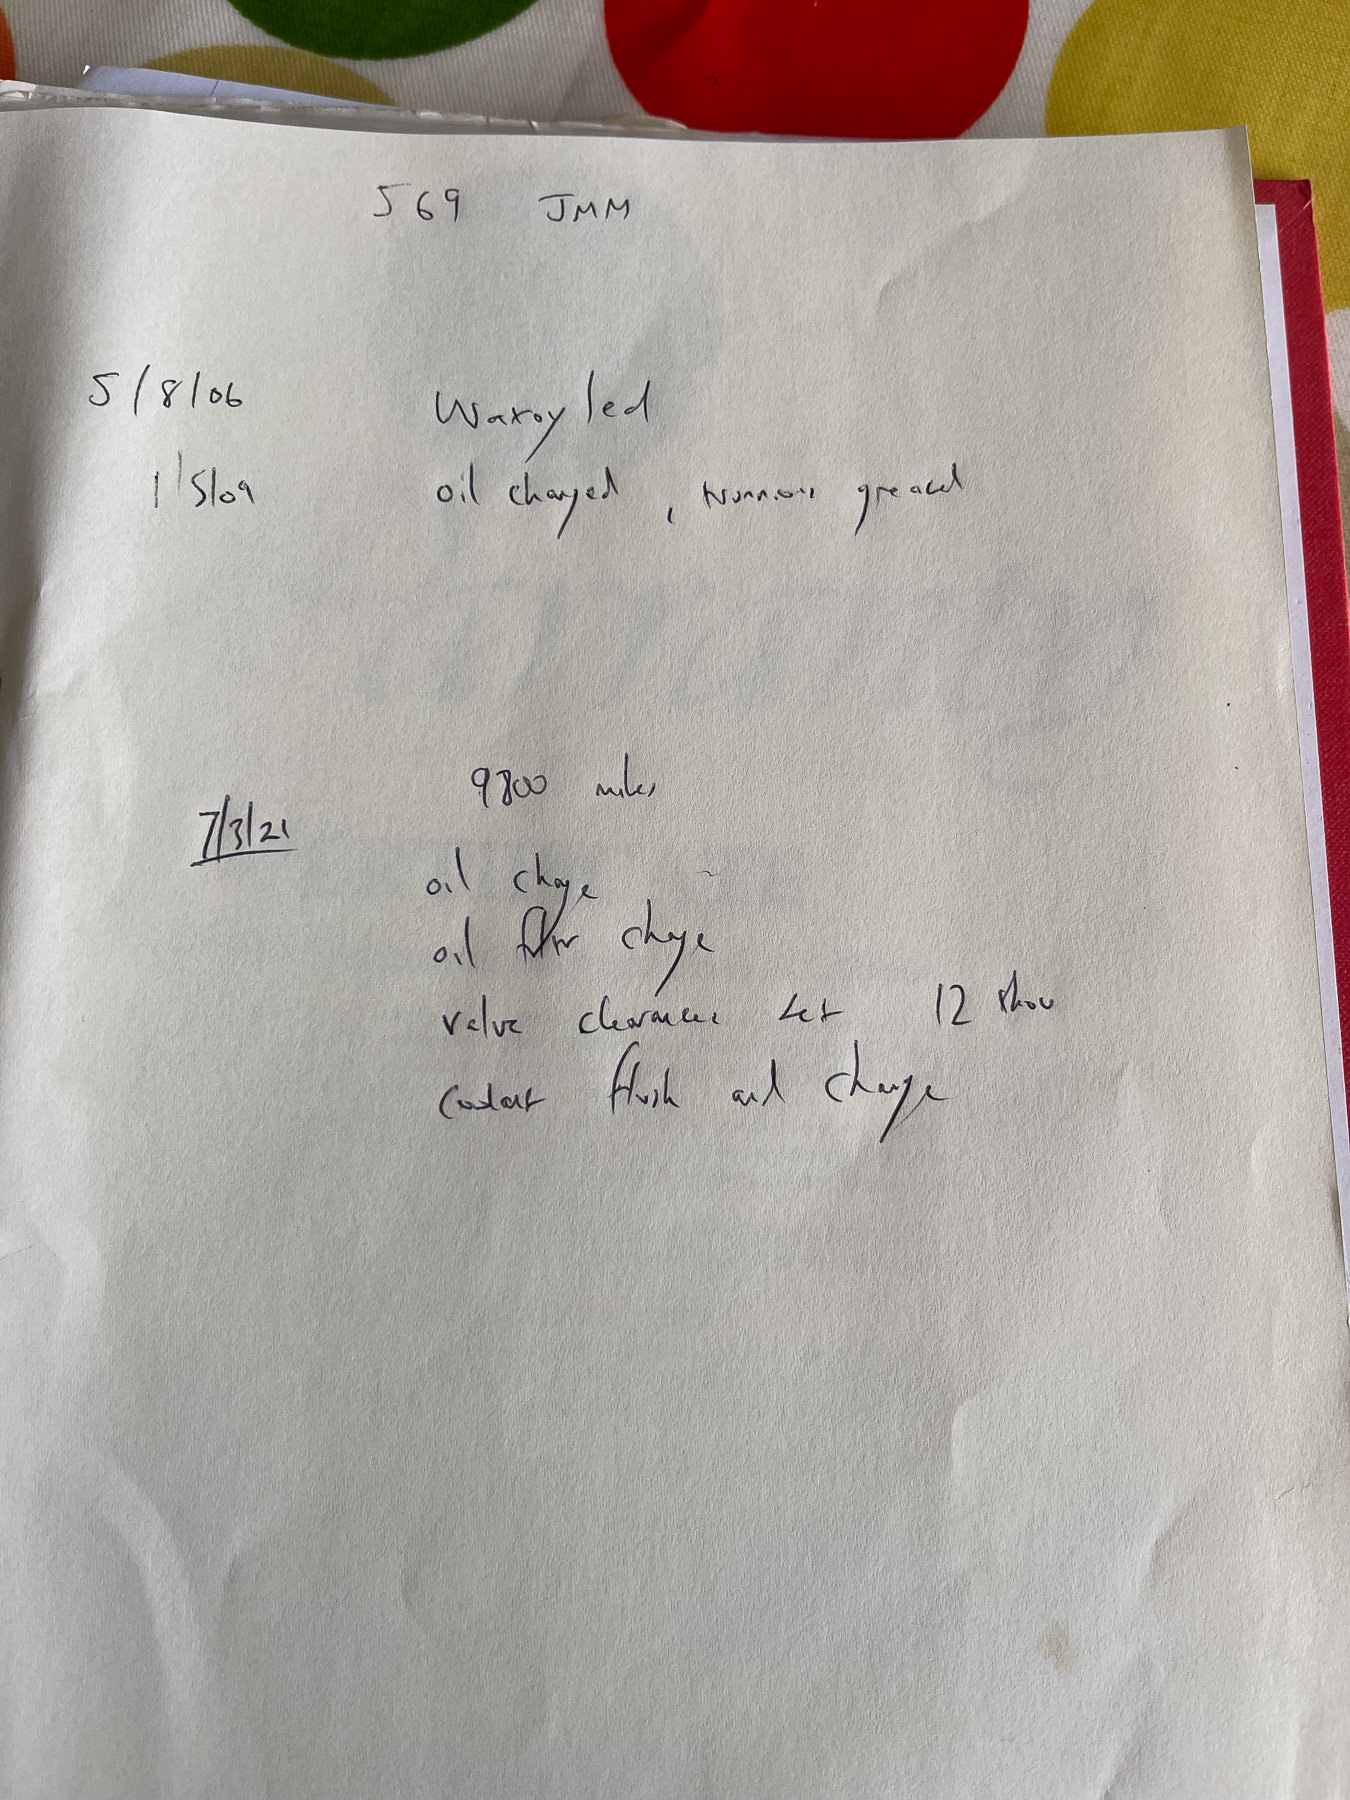 569 JMM
5/8/06 Waxoyled
1/5/09 oil changed, trunnions greased
9800 miles
7/3/21
oil change
oil filter change
valve clearances set 12 thou
coolant flush and change